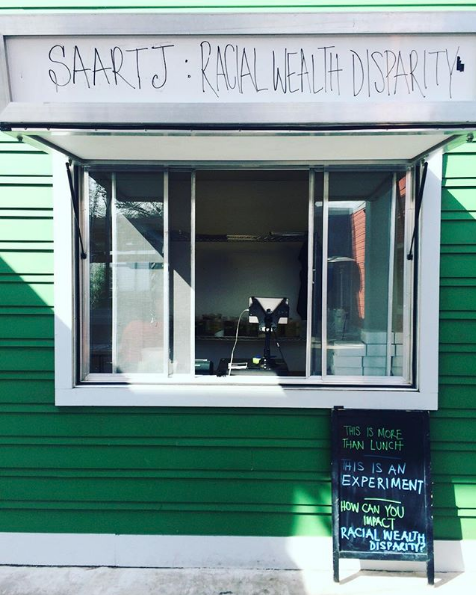 SAARTJ : RACIAL WEALTH DISPARITY
THIS IS MORE
THAN LUNCH
THIS IS AN
EXPERIMENT
HOW CAN YOU
IMPACT
RACIAL WEALTH
DISPARITY?